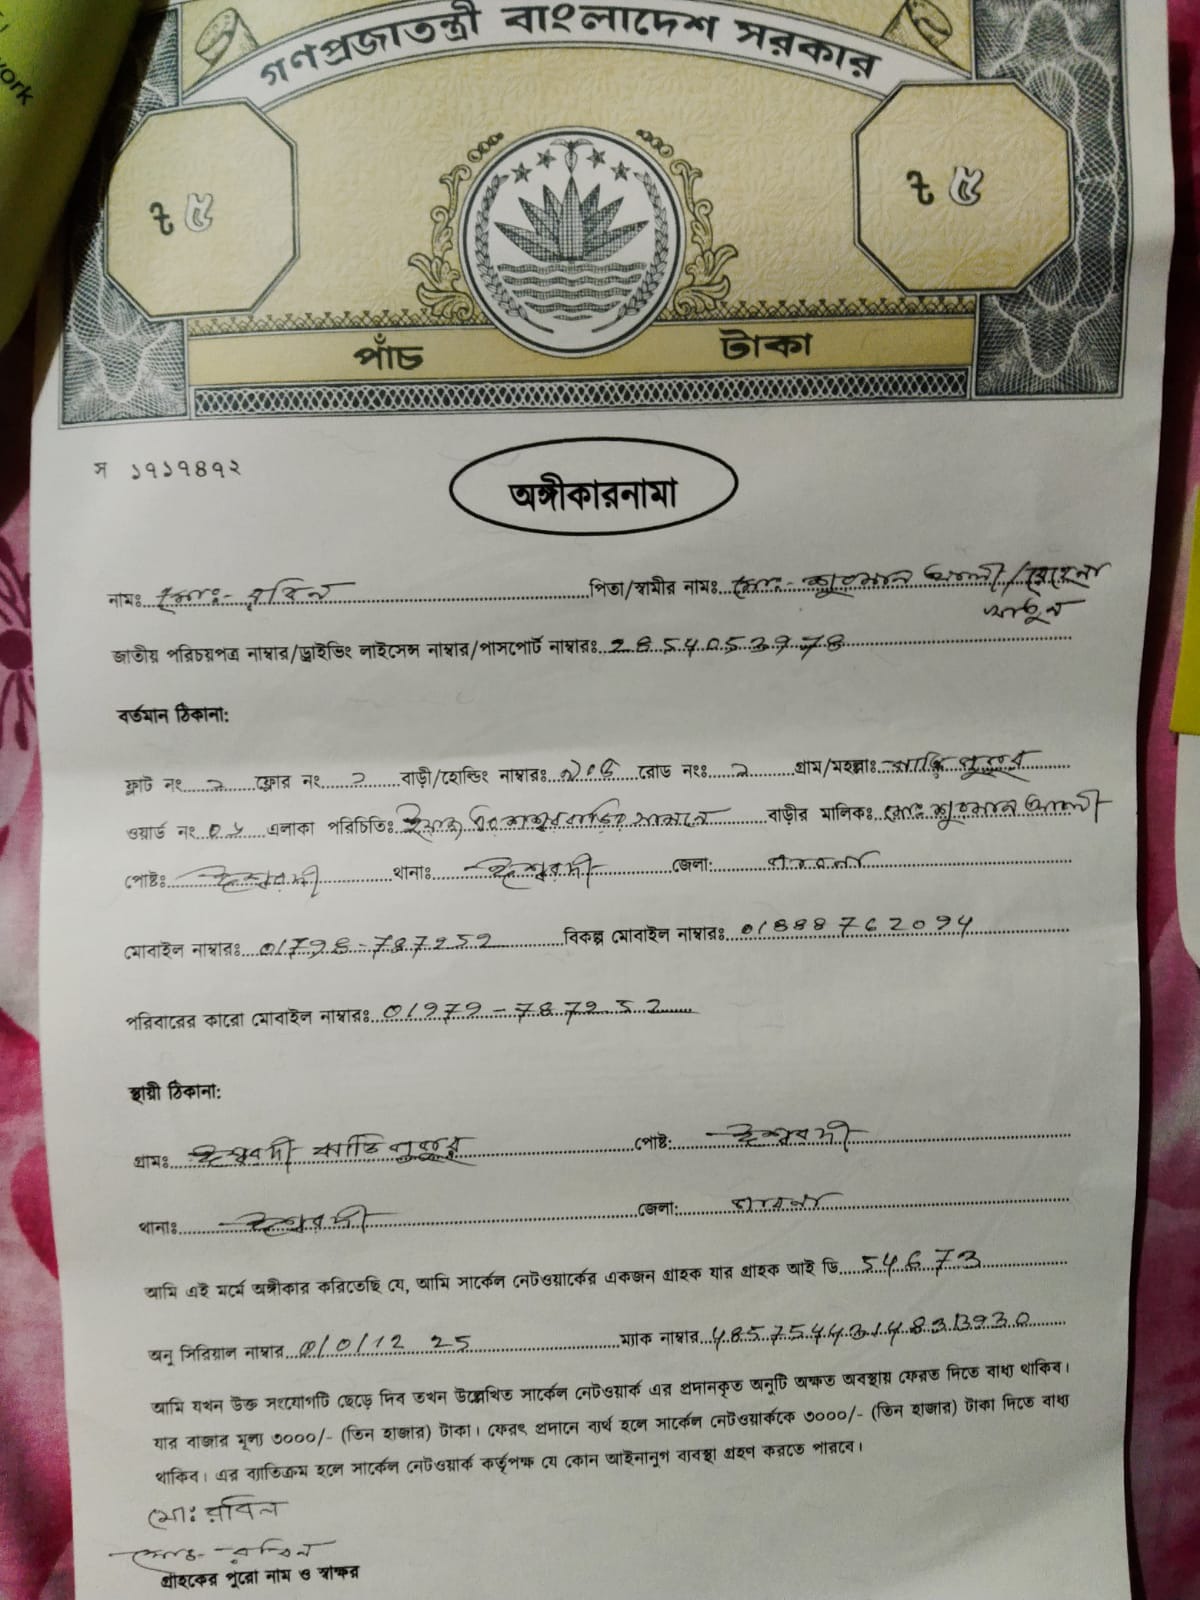 work
গণপ্রজাতন্ত্রী বাংলাদেশ সরকার
৳ ৫ ৳ ৫
পাঁচ টাকা
স ১৭১৭৪৭২
অঙ্গীকারনামা
নামঃ মোঃ- রবিন পিতা/স্বামীর নামঃ মোঃ-
জাতীয় পরিচয়পত্র নাম্বার/ড্রাইভিং লাইসেন্স নাম্বার/পাসপোর্ট নাম্বারঃ
বর্তমান ঠিকানা:
ফ্লাট নং ফ্লোর নং বাড়ী/হোল্ডিং নাম্বারঃ রোড নংঃ গ্রাম/মহল্লাঃ
ওয়ার্ড নং এলাকা পরিচিতিঃ বাড়ীর মালিকঃ মোঃ
পোষ্টঃ ঈশ্বরদী থানাঃ ঈশ্বরদী জেলা: পাবনা
মোবাইল নাম্বারঃ 01798-787252 বিকল্প মোবাইল নাম্বারঃ 01888762094
পরিবারের কারো মোবাইল নাম্বারঃ 01979-787252
স্থায়ী ঠিকানা:
গ্রামঃ ঈশ্বরদী পোষ্ট: ঈশ্বরদী
থানাঃ ঈশ্বরদী জেলা: পাবনা
আমি এই মর্মে অঙ্গীকার করিতেছি যে, আমি সার্কেল নেটওয়ার্কের একজন গ্রাহক যার গ্রাহক আই ডি 54673
অনু সিরিয়াল নাম্বার 0/0/12 25 ম্যাক নাম্বার
আমি যখন উক্ত সংযোগটি ছেড়ে দিব তখন উল্লেখিত সার্কেল নেটওয়ার্ক এর প্রদানকৃত অনুটি অক্ষত অবস্থায় ফেরত দিতে বাধ্য থাকিব।
যার বাজার মূল্য ৩০০০/- (তিন হাজার) টাকা। ফেরৎ প্রদানে ব্যর্থ হলে সার্কেল নেটওয়ার্ককে ৩০০০/- (তিন হাজার) টাকা দিতে বাধ্য
থাকিব। এর ব্যাতিক্রম হলে সার্কেল নেটওয়ার্ক কর্তৃপক্ষ যে কোন আইনানুগ ব্যবস্থা গ্রহণ করতে পারবে।
মোঃ রবিন
মোঃ- রবিন
গ্রাহকের পুরো নাম ও স্বাক্ষর